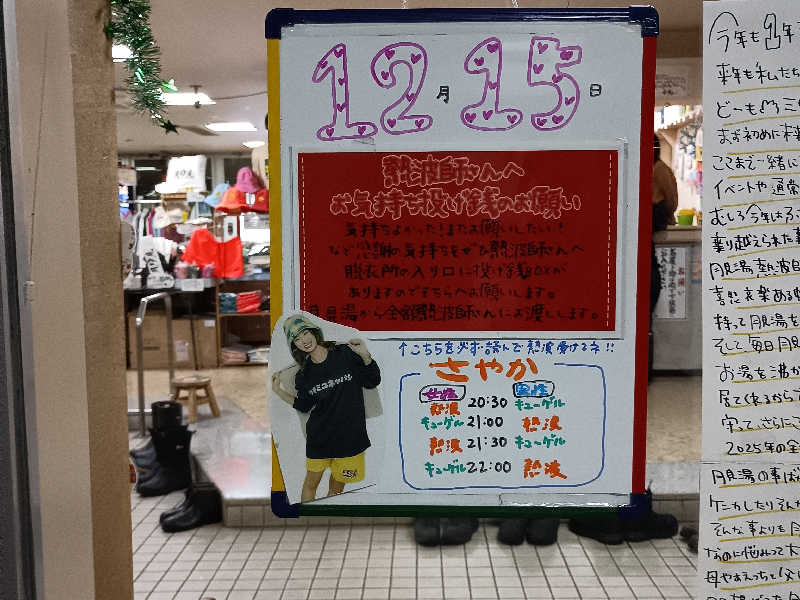 12月15日
熱波師さんへ
お気持ち投げ銭のお願い
気持ちよかった!またお願いしたい!
など感謝の気持ちをぜひ熱波師さんへ
脱衣所の入り口に投げ銭BOXが
ありますのでそちらへお願いします。
月見湯から全額熱波師さんにお渡しします。
↑こちらを必ず読んで熱波受けてネ!!
さやか
女性 男性
熱波 20:30 キューゲル
キューゲル 21:00 熱波
熱波 21:30 キューゲル
キューゲル 22:00 熱波
今年も1年
来年も私たち
ど〜も
まず初めに本
ここまで一緒に
イベントや通常
むしろ今年は
乗り越えられた
月見湯熱波
喜怒哀楽ある
持って月見湯を
そして、毎日月見
お湯を沸か
居てくれるから
守って、さらに
2025年の全
月見湯の事は
ケンカしたりそん
そんな事よりも月
なのに悩んで大